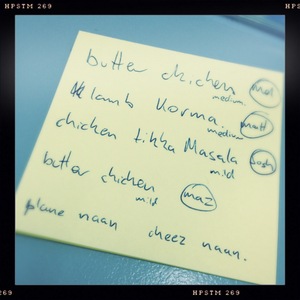 HPSTM 269
butter chicken medium mel
lamb Korma medium matt
chicken tikka Masala mild Josh
butter chicken mild maz
plane naan cheez naan.
HPSTM 269